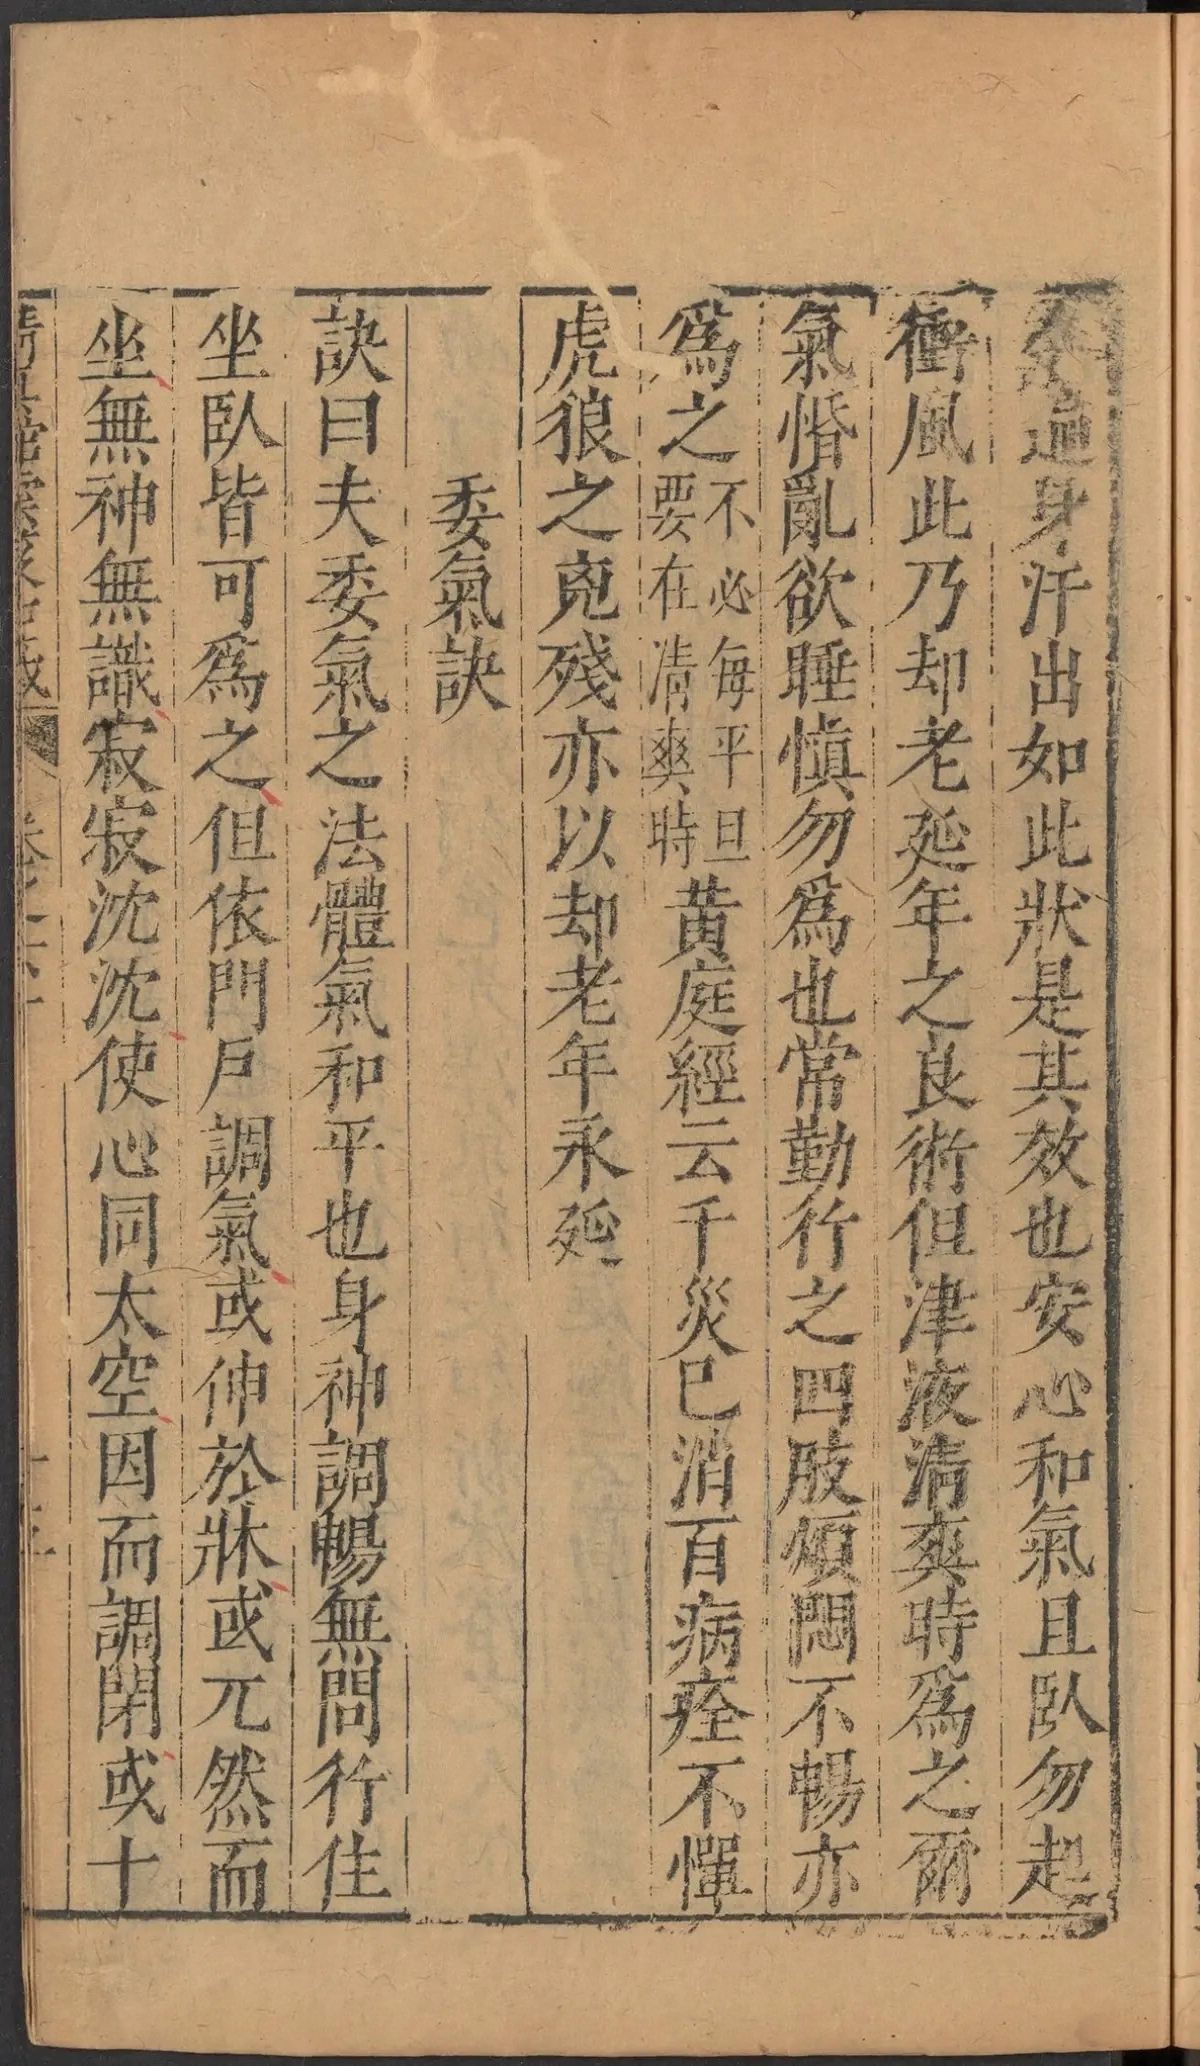 遍身汗出如此狀是其效也安心和氣且臥勿起
衝風此乃却老延年之良術但津液清爽時爲之爾
氣惛亂欲睡慎勿爲也常勤行之四肢煩悶不暢亦
爲之不必每平旦要在清爽時黄庭經云千災已消百病痊不憚
虎狼之兇殘亦以却老年永延
委氣訣
訣曰夫委氣之法體氣和平也身神調暢無問行住
坐臥皆可爲之但依門戶調氣或伸於牀或兀然而
坐無神無識寂寂沈沈使心同太空因而調閉或十